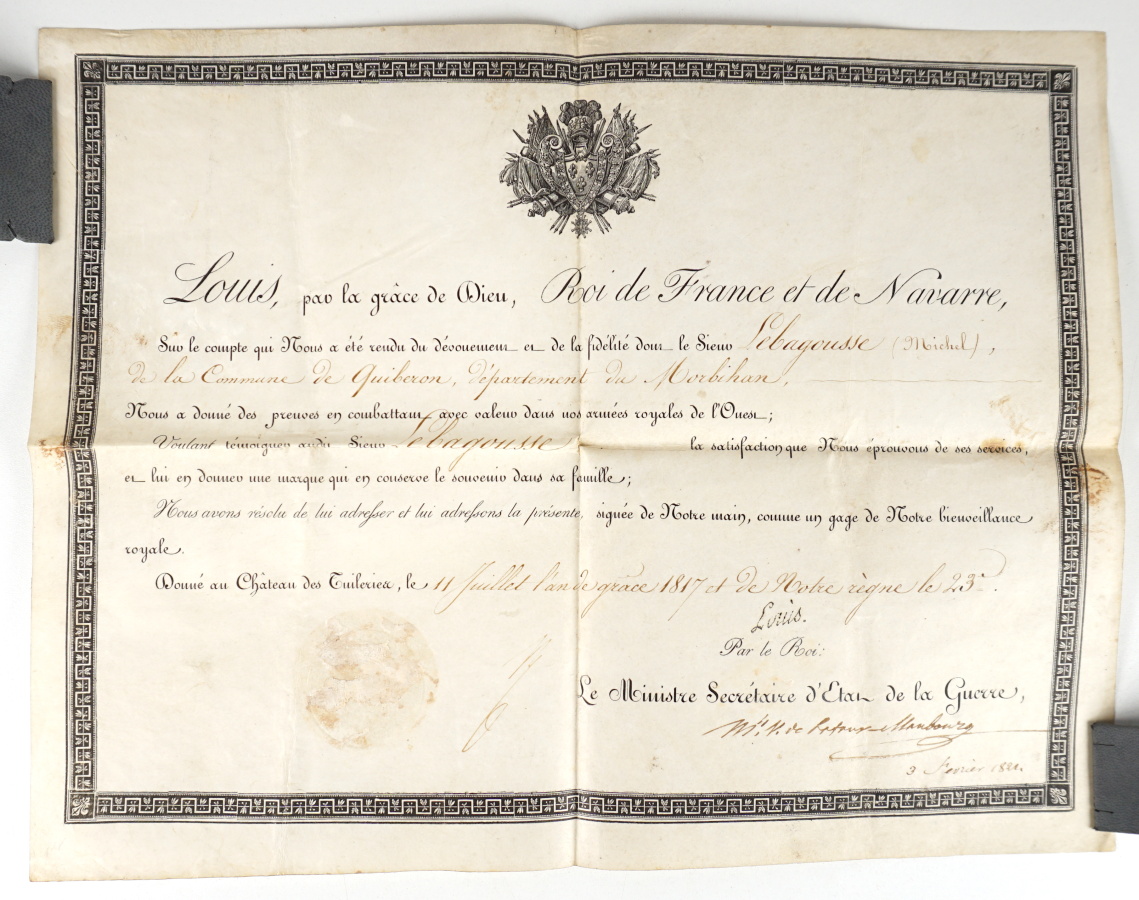 Louis, par la grâce de Dieu, Roi de France et de Navarre,
Sur le compte qui Nous a été rendu du dévouement et de la fidélité dont le Sieur Lebagousse (Michel),
de la Commune de Quiberon, département du Morbihan,
Nous a donné des preuves en combattant avec valeur dans nos armées royales de l'Ouest;
Voulant témoigner audit Sieur Lebagousse la satisfaction que Nous éprouvons de ses services,
et lui en donner une marque qui en conserve le souvenir dans sa famille;
Nous avons résolu de lui adresser et lui adressons la présente, signée de Notre main, comme un gage de Notre bienveillance
royale.
Donné au Château des Tuileries, le 11 Juillet l'an de grâce 1817 et de Notre règne le 23e.
Louis.
Par le Roi:
Le Ministre Secrétaire d'Etat de la Guerre,
Mis. V. de Latour-Maubourg
3 Février 1821.